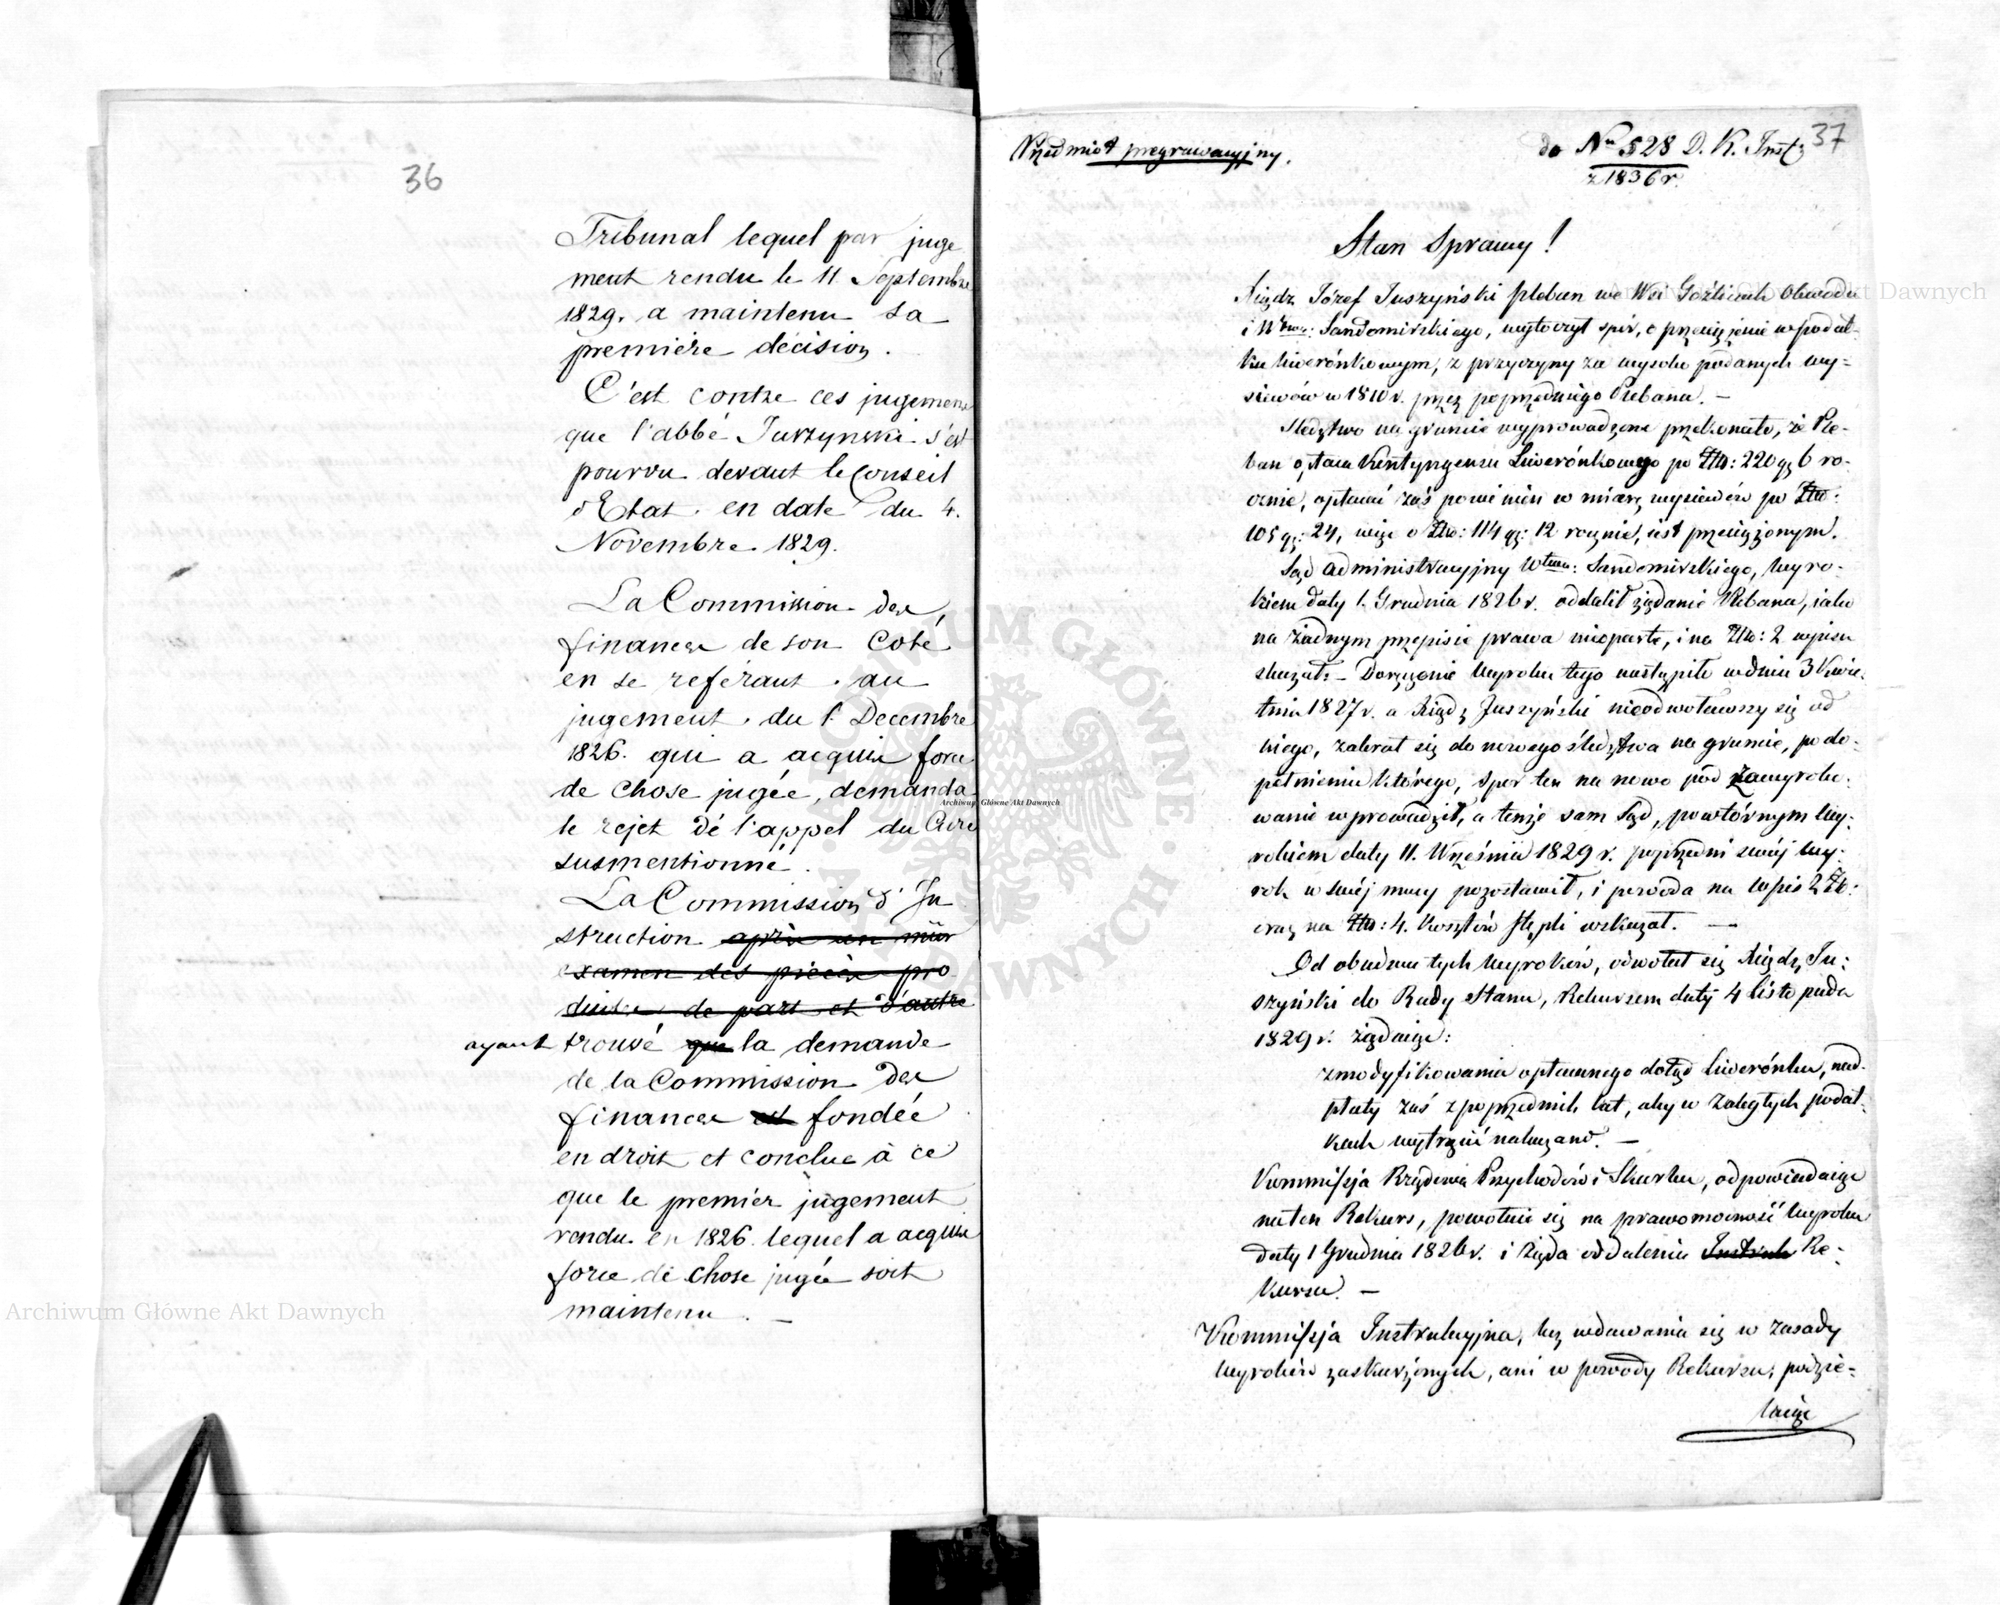 36
Tribunal lequel par juge
ment rendu le 11 Septembre
1829. a maintenu sa
première décision.
C'est contre ces jugemens
que l'abbé Juszynski s'est
pourvu devant le Conseil
d'Etat en date du 4.
Novembre 1829.
La Commission des
finances de son Coté
en se referant au
jugement du 1. Decembre
1826. qui a acquis force
de chose jugée, demanda
le rejet dé l'appel du Curé
susmentionné.
La Commission d'In
struction après un mûr
examen des pièces pro
duites de part et d'autre
ayant trouvé que la demande
de la Commission des
finances est fondée
en droit et conclue à ce
que le premier jugement
rendu en 1826. lequel a acquis
force de chose jugée soit
maintenu. —
Przedmiot pregrawacyjny.
do Nru 528 D. K. Inst; 37
z 1836 r.
Stan Sprawy!
Xiądz Józef Juszyński pleban we Wsi Goźlicach Obwodu
i Wtwa: Sandomirskiego, wytoczył spór, o przeciążenie w podat-
ku liwerónkowym, z przyczyny za wysoko podanych wy-
siewów w 1810 r. przez poprzedniego Plebana. —
Sledztwo na gruncie wyprowadzone przekonało, że Ple-
ban opłaca Kontyngensu Liwerónkowego po Złp: 220 gr 6 ro-
cznie, opłacać zaś powinien w miarę wysiewów po Złp:
105 gr: 24, więc o Złp: 114 gr: 12 rocznie, jest przeciążonym.
Sąd administracyjny Wtwa: Sandomirskiego, Wyro-
kiem daty 1. Grudnia 1826 r. oddalił żądanie Plebana, jako
na żadnym przepisie prawa nieoparte, i na Złp: 2 wpisu
skazał. – Doręczenie Wyroku tego nastąpiło w dniu 3 Kwie-
tnia 1827 r. a Xiądz Juszyński nieodwoławszy się od
niego, zabrał się do nowego śledztwa na gruncie, po do-
pełnieniu którego, spor ten na nowo pod zawyroko-
wanie wprowadził, a tenże sam Sąd, powtórnym Wy-
rokiem daty 11. Września 1829 r. poprzedni swój Wy-
rok w swéj mocy pozostawił, i powoda na wpis 2 Zł:
oraz na Złp: 4. kosztów stępli wskazał. —
Od obudwu tych Wyroków, odwołał się Xiądz Ju-
szyński do Rady Stanu, Rekursem daty 4 Listopada
1829 r. żądając:
zmodyfikowania opłacanego dotąd Liwerónku, nad-
płaty zaś z poprzednich lat, aby w zaległych podat-
kach wytrącić nakazano. —
Kommissja Rządowa Przychodów i Skarbu, odpowiadając
na ten Rekurs, powołuie się na prawomocność Wyroku
daty 1 Grudnia 1826 r. i żąda oddalenia Re-
kursu. —
Kommissja Instrukcyjna, bez wdawania się w zasady
Wyroków zaskarżonych, ani w powody Rekursu, podzie-
laiąc
Archiwum Główne Akt Dawnych
Archiwum Główne Akt Dawnych
Archiwum Główne Akt Dawnych
ARCHIWUM GŁÓWNE AKT DAWNYCH